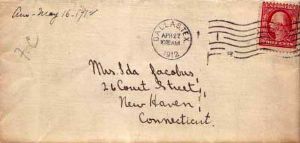 Ans - May 16 - 1912
DALLAS, TEX.
APR 27
1912
Mrs. Ida Jacobus,
26 Court Street,
New Haven,
Connecticut.